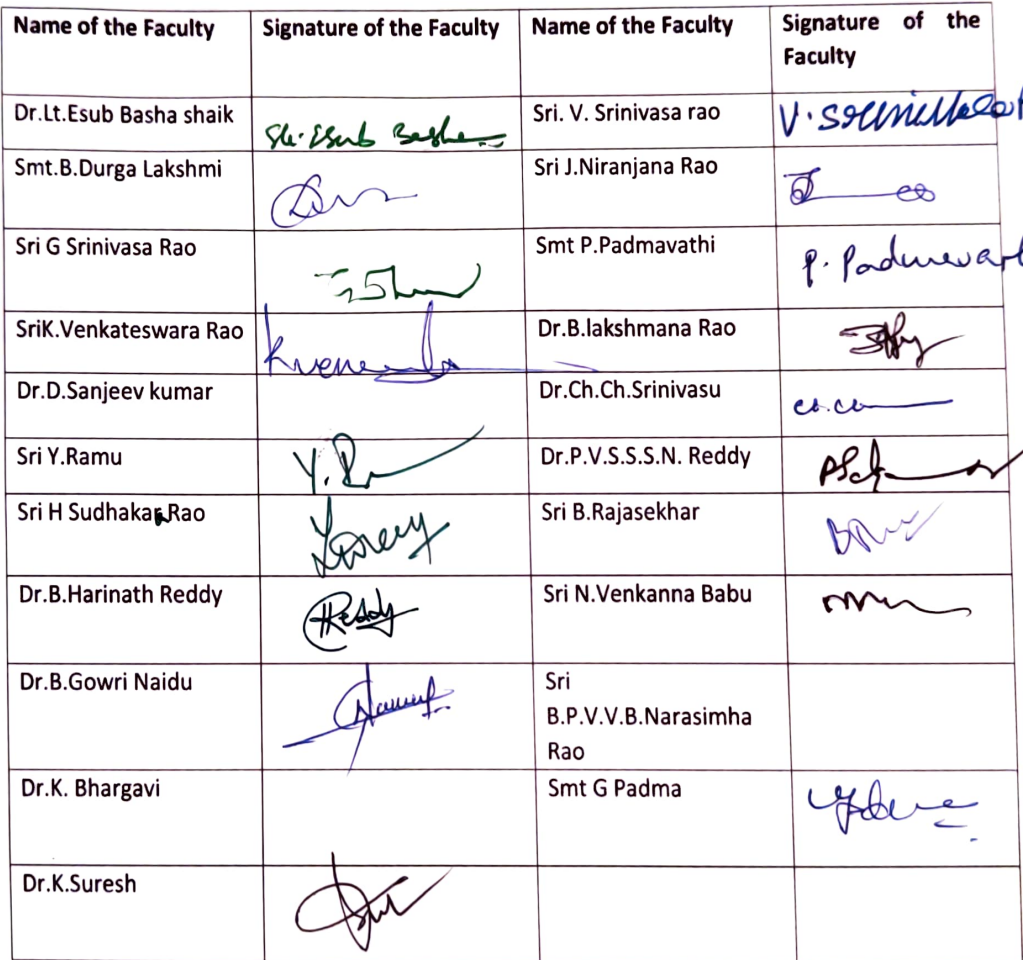 Name of the Faculty Signature of the Faculty Name of the Faculty Signature of the
Faculty
Dr.Lt.Esub Basha shaik Sk.Esub Basha Sri. V. Srinivasa rao
Smt.B.Durga Lakshmi Sri J.Niranjana Rao
Sri G Srinivasa Rao Smt P.Padmavathi P. Padmavat
SriK.Venkateswara Rao Dr.B.lakshmana Rao
Dr.D.Sanjeev kumar Dr.Ch.Ch.Srinivasu
Sri Y.Ramu Dr.P.V.S.S.S.N. Reddy
Sri H Sudhakar Rao Sri B.Rajasekhar
Dr.B.Harinath Reddy HReddy Sri N.Venkanna Babu
Dr.B.Gowri Naidu Sri
B.P.V.V.B.Narasimha
Rao
Dr.K. Bhargavi Smt G Padma
Dr.K.Suresh